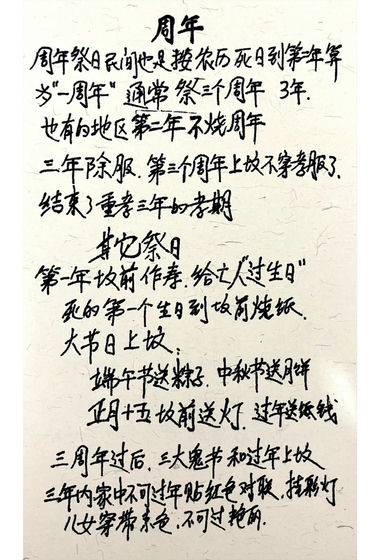 周年
周年祭日民间也是按农历死日到第二年算
为"一周年" 通常祭三个周年 3年.
也有的地区第二年不烧周年
三年除服.第三个周年上坟不穿孝服了.
结束了重孝三年的孝期
其它祭日
第一年坟前作寿.给亡人"过生日"
死的第一个生日到坟前烧纸.
大节日上坟:
端午节送粽子.中秋节送月饼
正月十五坟前送灯.过年送纸钱
三周年过后.三大鬼节和过年上坟
三年内家中不可过年贴红色对联.挂彩灯
儿女穿带素色,不可过艳丽.